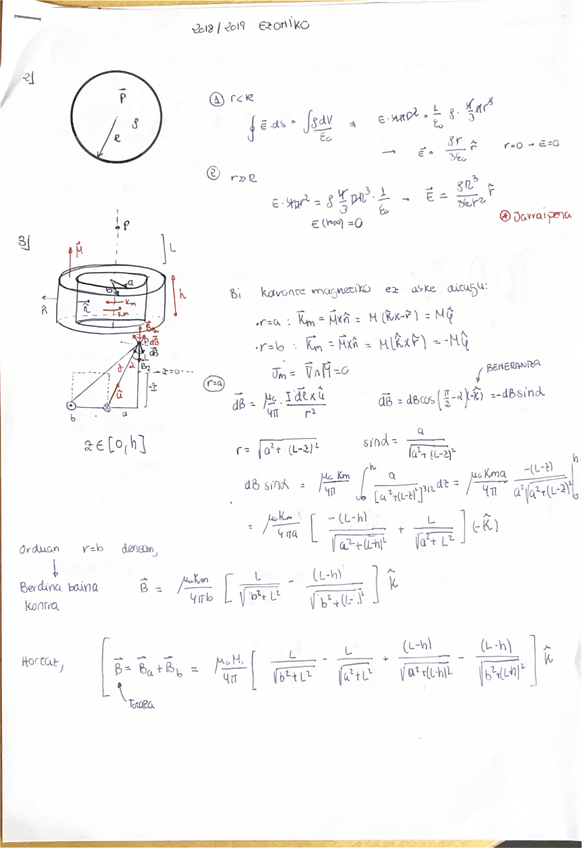 2018/2019 EZOHIKO
2)
P
R
ρ
① r<R
∮ E⃗·ds = ∫ ρdV/ε₀ ⇒ E·4πr² = 1/ε₀ ρ · 4/3 πr³
→ E⃗ = ρr/3ε₀ r̂ r=0 → E=0
② r>R
E·4πr² = ρ 4/3 πR³ · 1/ε₀ → E⃗ = ρR³/3ε₀r² r̂
E(r→∞) = 0
* Jarraipena
3)
P
L
M⃗
a
b
h
R
Km
Km
dB
z=0
û
b a
z ∈ [0,h]
Bi korronte magnetiko ez aske ditugu:
· r=a : K⃗m = M⃗xn̂ = M(k̂x-r̂) = Mφ̂
· r=b : K⃗m = M⃗xn̂ = M(k̂xr̂) = -Mφ̂
J⃗m = ∇⃗∧M⃗ = 0
BEHERANTZA
r=a
dB⃗ = μ₀/4π · I dl⃗ x û / r² dB⃗ = dBcos(π/2 - α)(-k̂) = -dB sinα
r = √(a² + (L-z)²) sinα = a/√(a²+(L-z)²)
dB sinα = μ₀Km/4π ∫₀ʰ a/[a²+(L-z)²]^{3/2} dz = μ₀Kma/4π · -(L-z)/a²√(a²+(L-z)²) |₀ʰ
= μ₀Km/4πa [ -(L-h)/√(a²+(L-h)²) + L/√(a²+L²) ] (-k̂)
Orduan r=b denean,
Berdina baina kontra B⃗ = μ₀Km/4πb [ L/√(b²+L²) - (L-h)/√(b²+(L-)²) ] k̂
Hortaz, [ B⃗ = B⃗a + B⃗b = μ₀M/4π [ L/√(b²+L²) - L/√(a²+L²) + (L-h)/√(a²+(L-h)²) - (L-h)/√(b²+(L-h)²) ] k̂
Totala